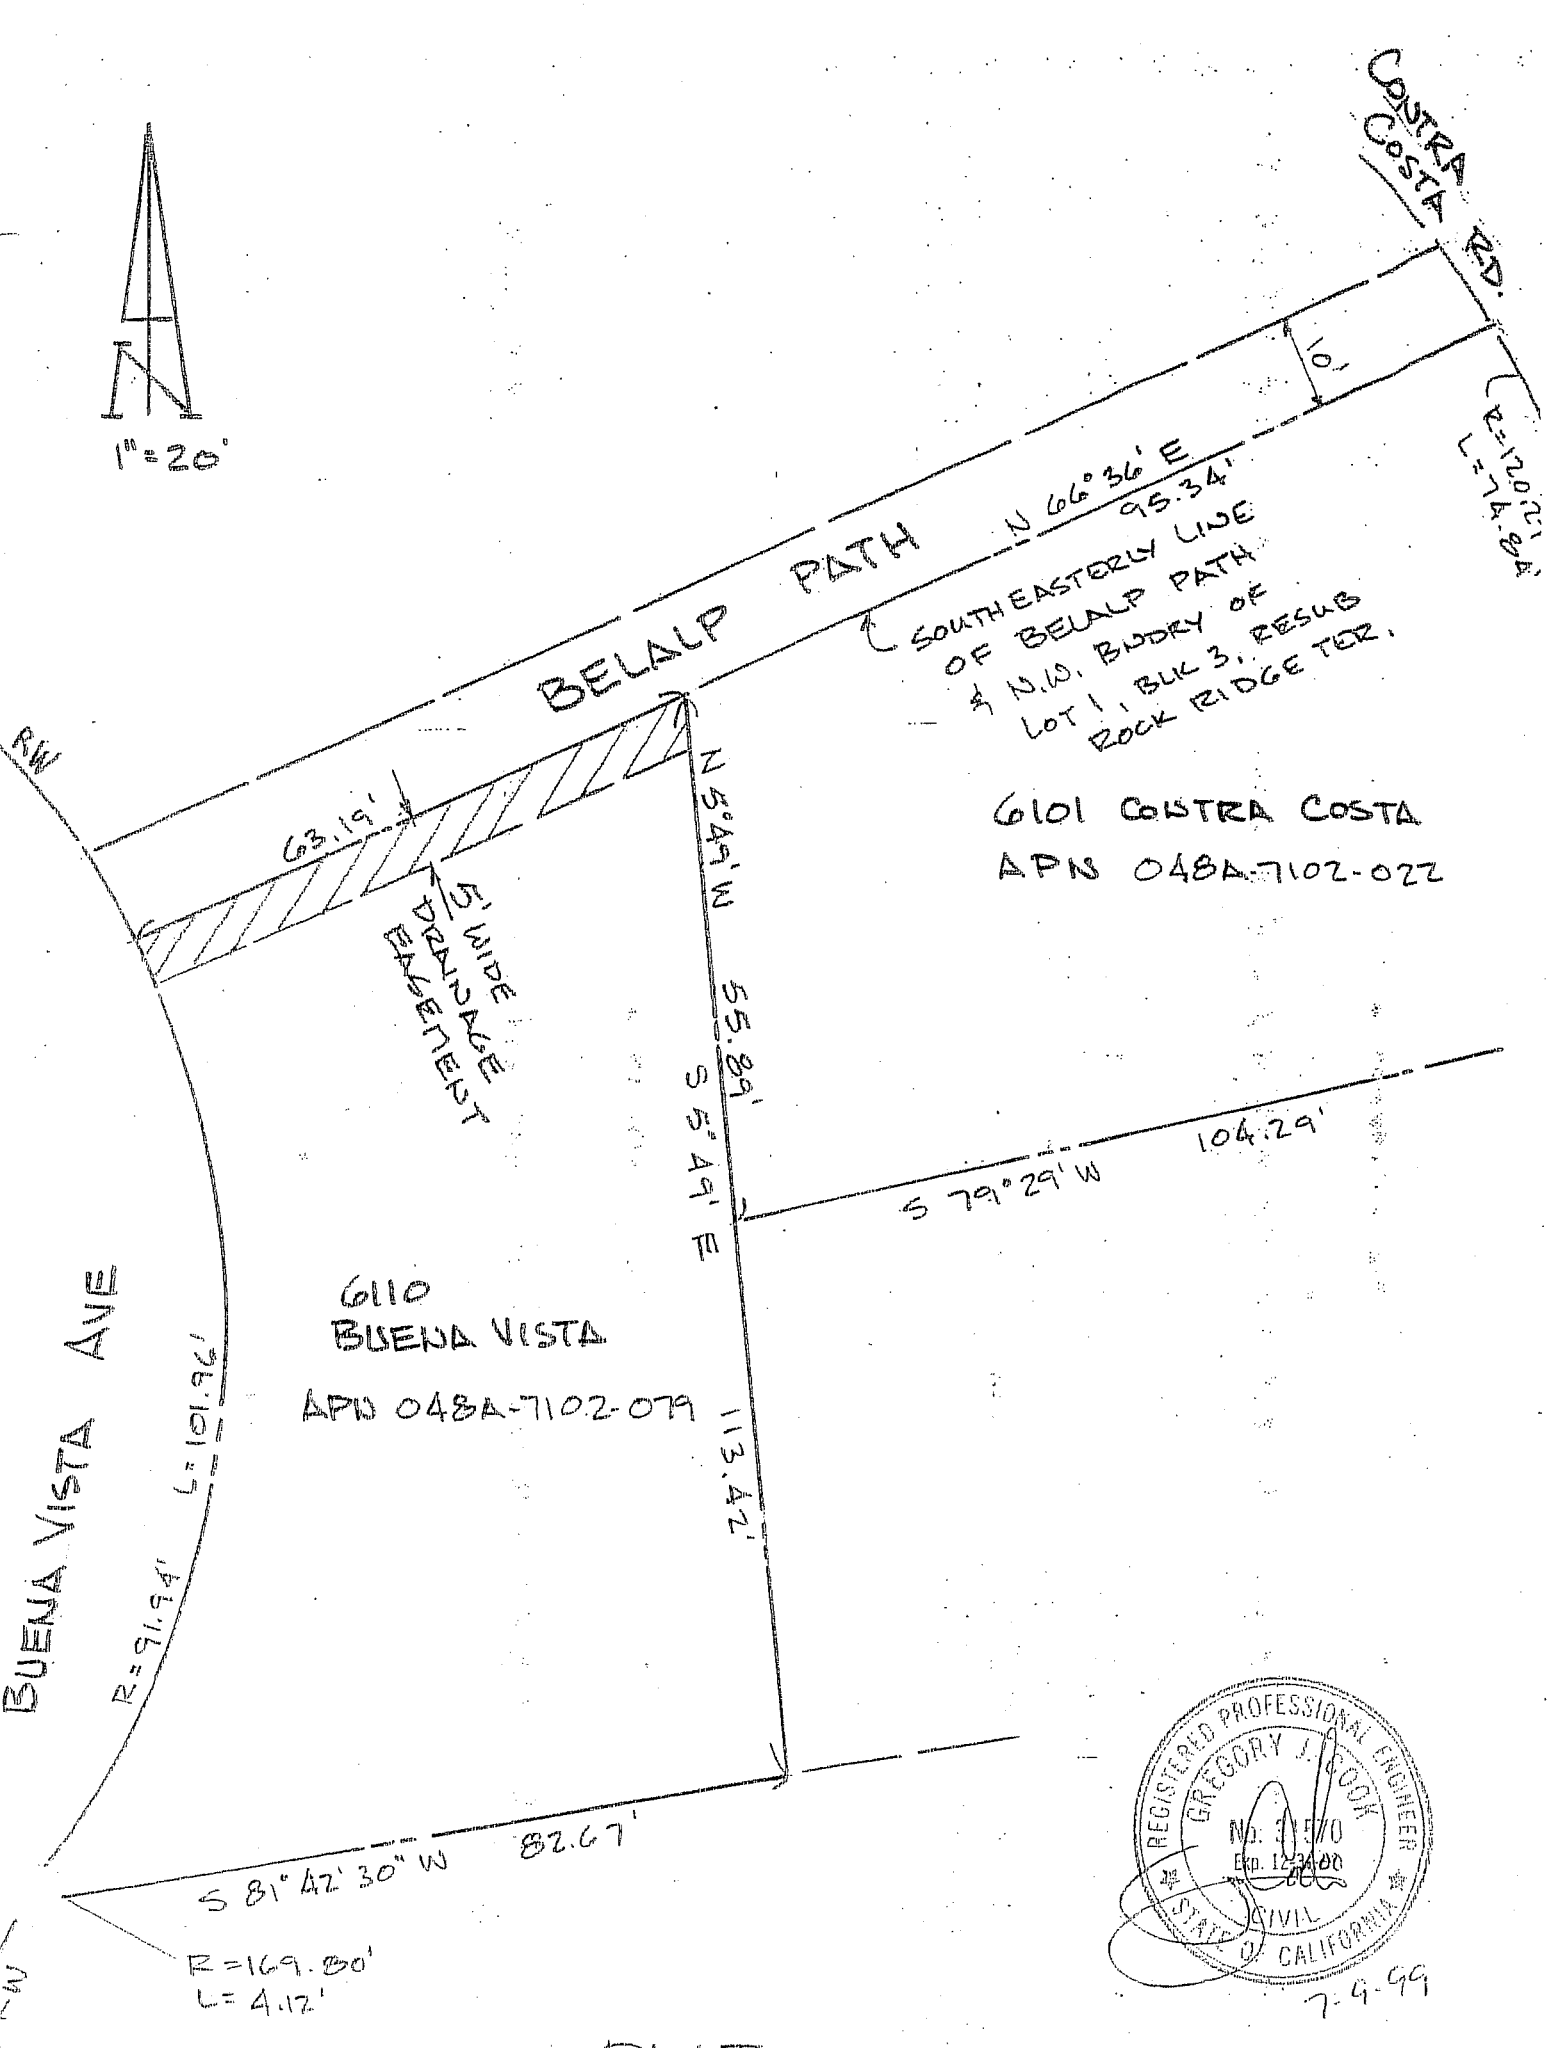 CONTRA
COSTA
RD.
N
1"=20'
10'
R=120.2'
L=74.84'
N 66°36' E
95.34'
BELALP PATH
SOUTHEASTERLY LINE
OF BELALP PATH
& N.W. BNDRY OF
LOT 1, BLK 3, RESUB
ROCK RIDGE TER.
RW
63.19'
5' WIDE
DRAINAGE
EASEMENT
N 5°49' W
55.89'
6101 CONTRA COSTA
APN 048A-7102-022
S 5°49' E
113.42'
S 79°29' W
104.29'
6110
BUENA VISTA
APN 048A-7102-079
BUENA VISTA AVE
L=101.96'
R=91.94'
S 81°42'30" W
82.67'
R=169.80'
L=4.12'
REGISTERED PROFESSIONAL ENGINEER
GREGORY J. COOK
No.
Exp.
CIVIL
STATE OF CALIFORNIA
7-9-99